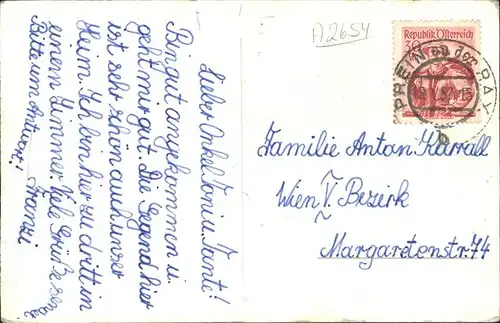 A 2654
Republik Österreich
30
PREIN an der RAX
Lieber Onkel Toni u. Tante!
Bin gut angekommen u.
geht mir gut. Die Gegend hier
ist sehr schön auch unser
Heim. Ich bin hier zu dritt in
einem Zimmer. Viele Grüße
Bitte um Antwort!
Franzi
Familie Anton Karrall
Wien V. Bezirk
Margaretenstr. 74